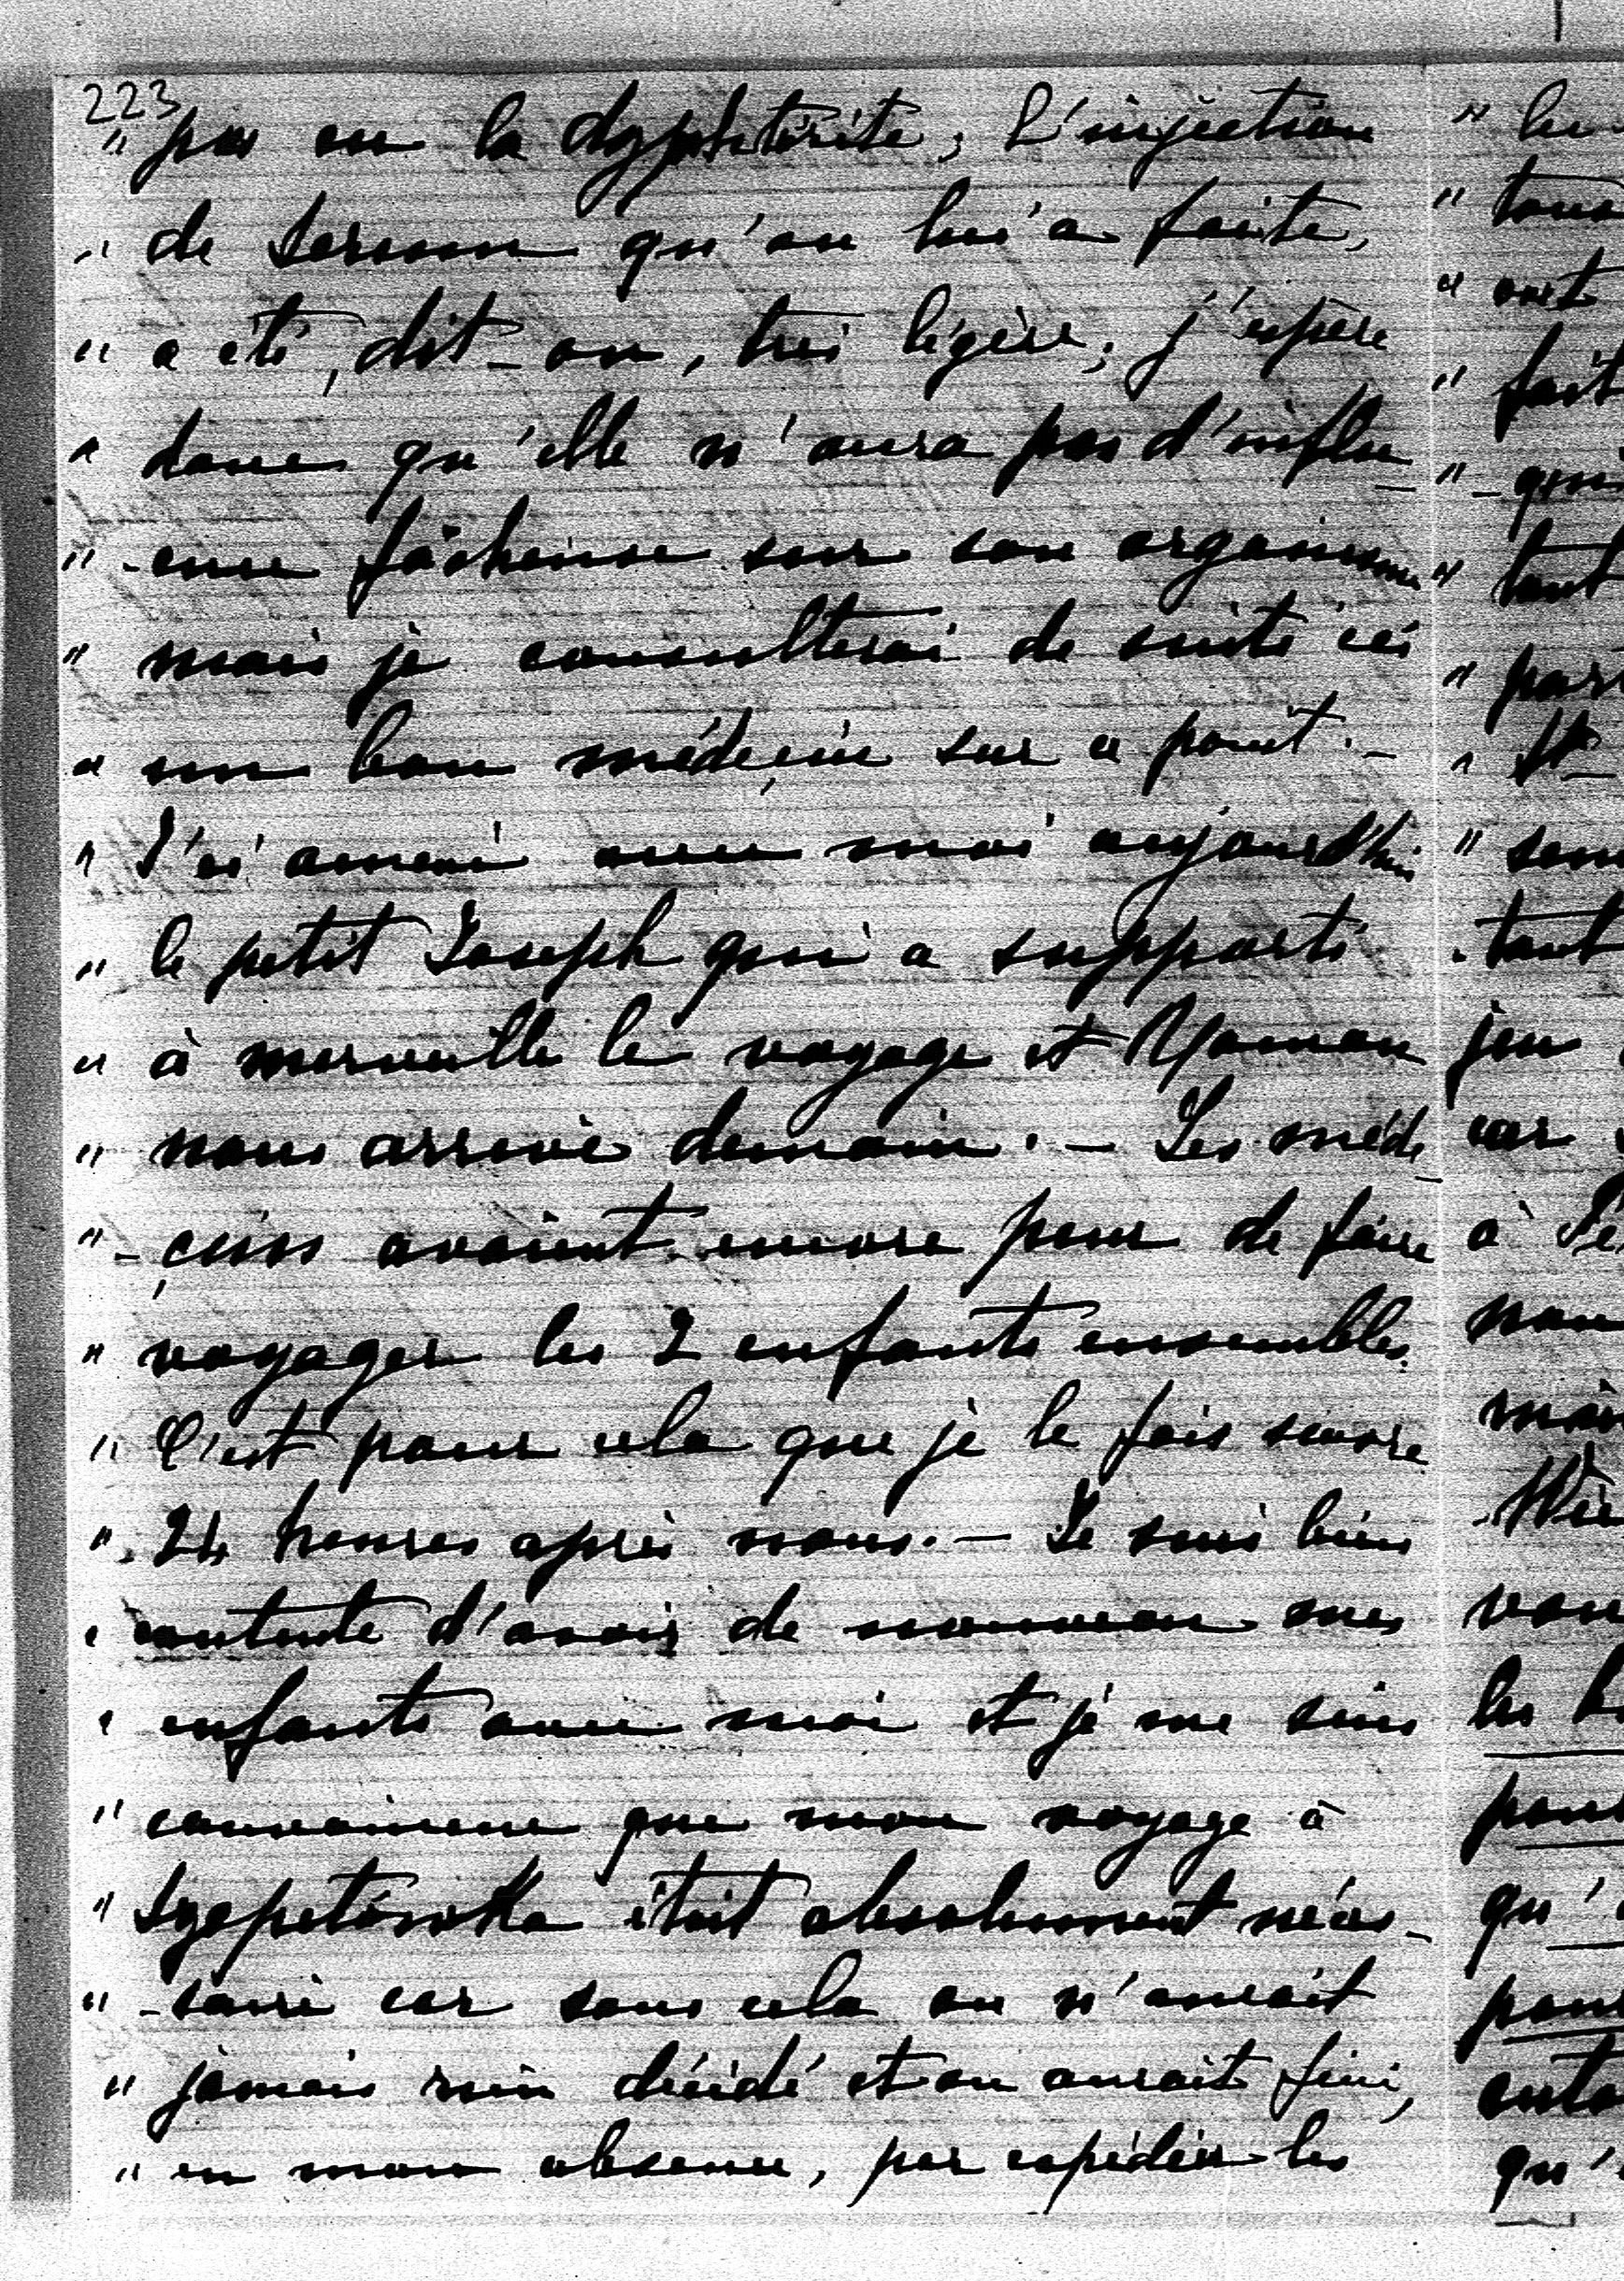 223
" pas eu la dyphtérite; L'injection
" de serum qu'on lui a faite,
" a été, dit-on, très légère; j'espère
" donc qu'elle n'aura pas d'influ-
" -ence fâcheuse sur son organisme
" mais je consulterai de suite ici
" un bon médeçin sur ce point. –
" J'ai amené avec moi aujourd'hui
" le petit Joseph qui a supporté
" à merveille le voyage et
" nous arrive demain. – Les méde-
" -çins avaient encore peur de faire
" voyager les 2 enfants ensembles.
" C'est pour cela que je le fais suivre
" 24 heures après nous. – Je suis bien
" contente d'avoir de nouveau mes
" enfants avec moi et je me suis
" convaincue que mon voyage à
" Szepetówka était absolument néces-
" -saire car sans cela on n'aurait
" jamais rien décidé et on aurait fini,
" en mon absence, par expédier les
" les
"
" ont
" fait
" -qui
" tant
" par
"
"
. tant
jeu
car
à
mai
les
pour
qu'
pour
qu'